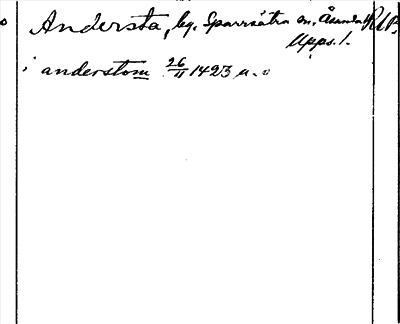 Andersta, by. Sparrsätra sn, Åsunda hd RAP.
Upps. l.
i anderstom 26/11 1423 u. o